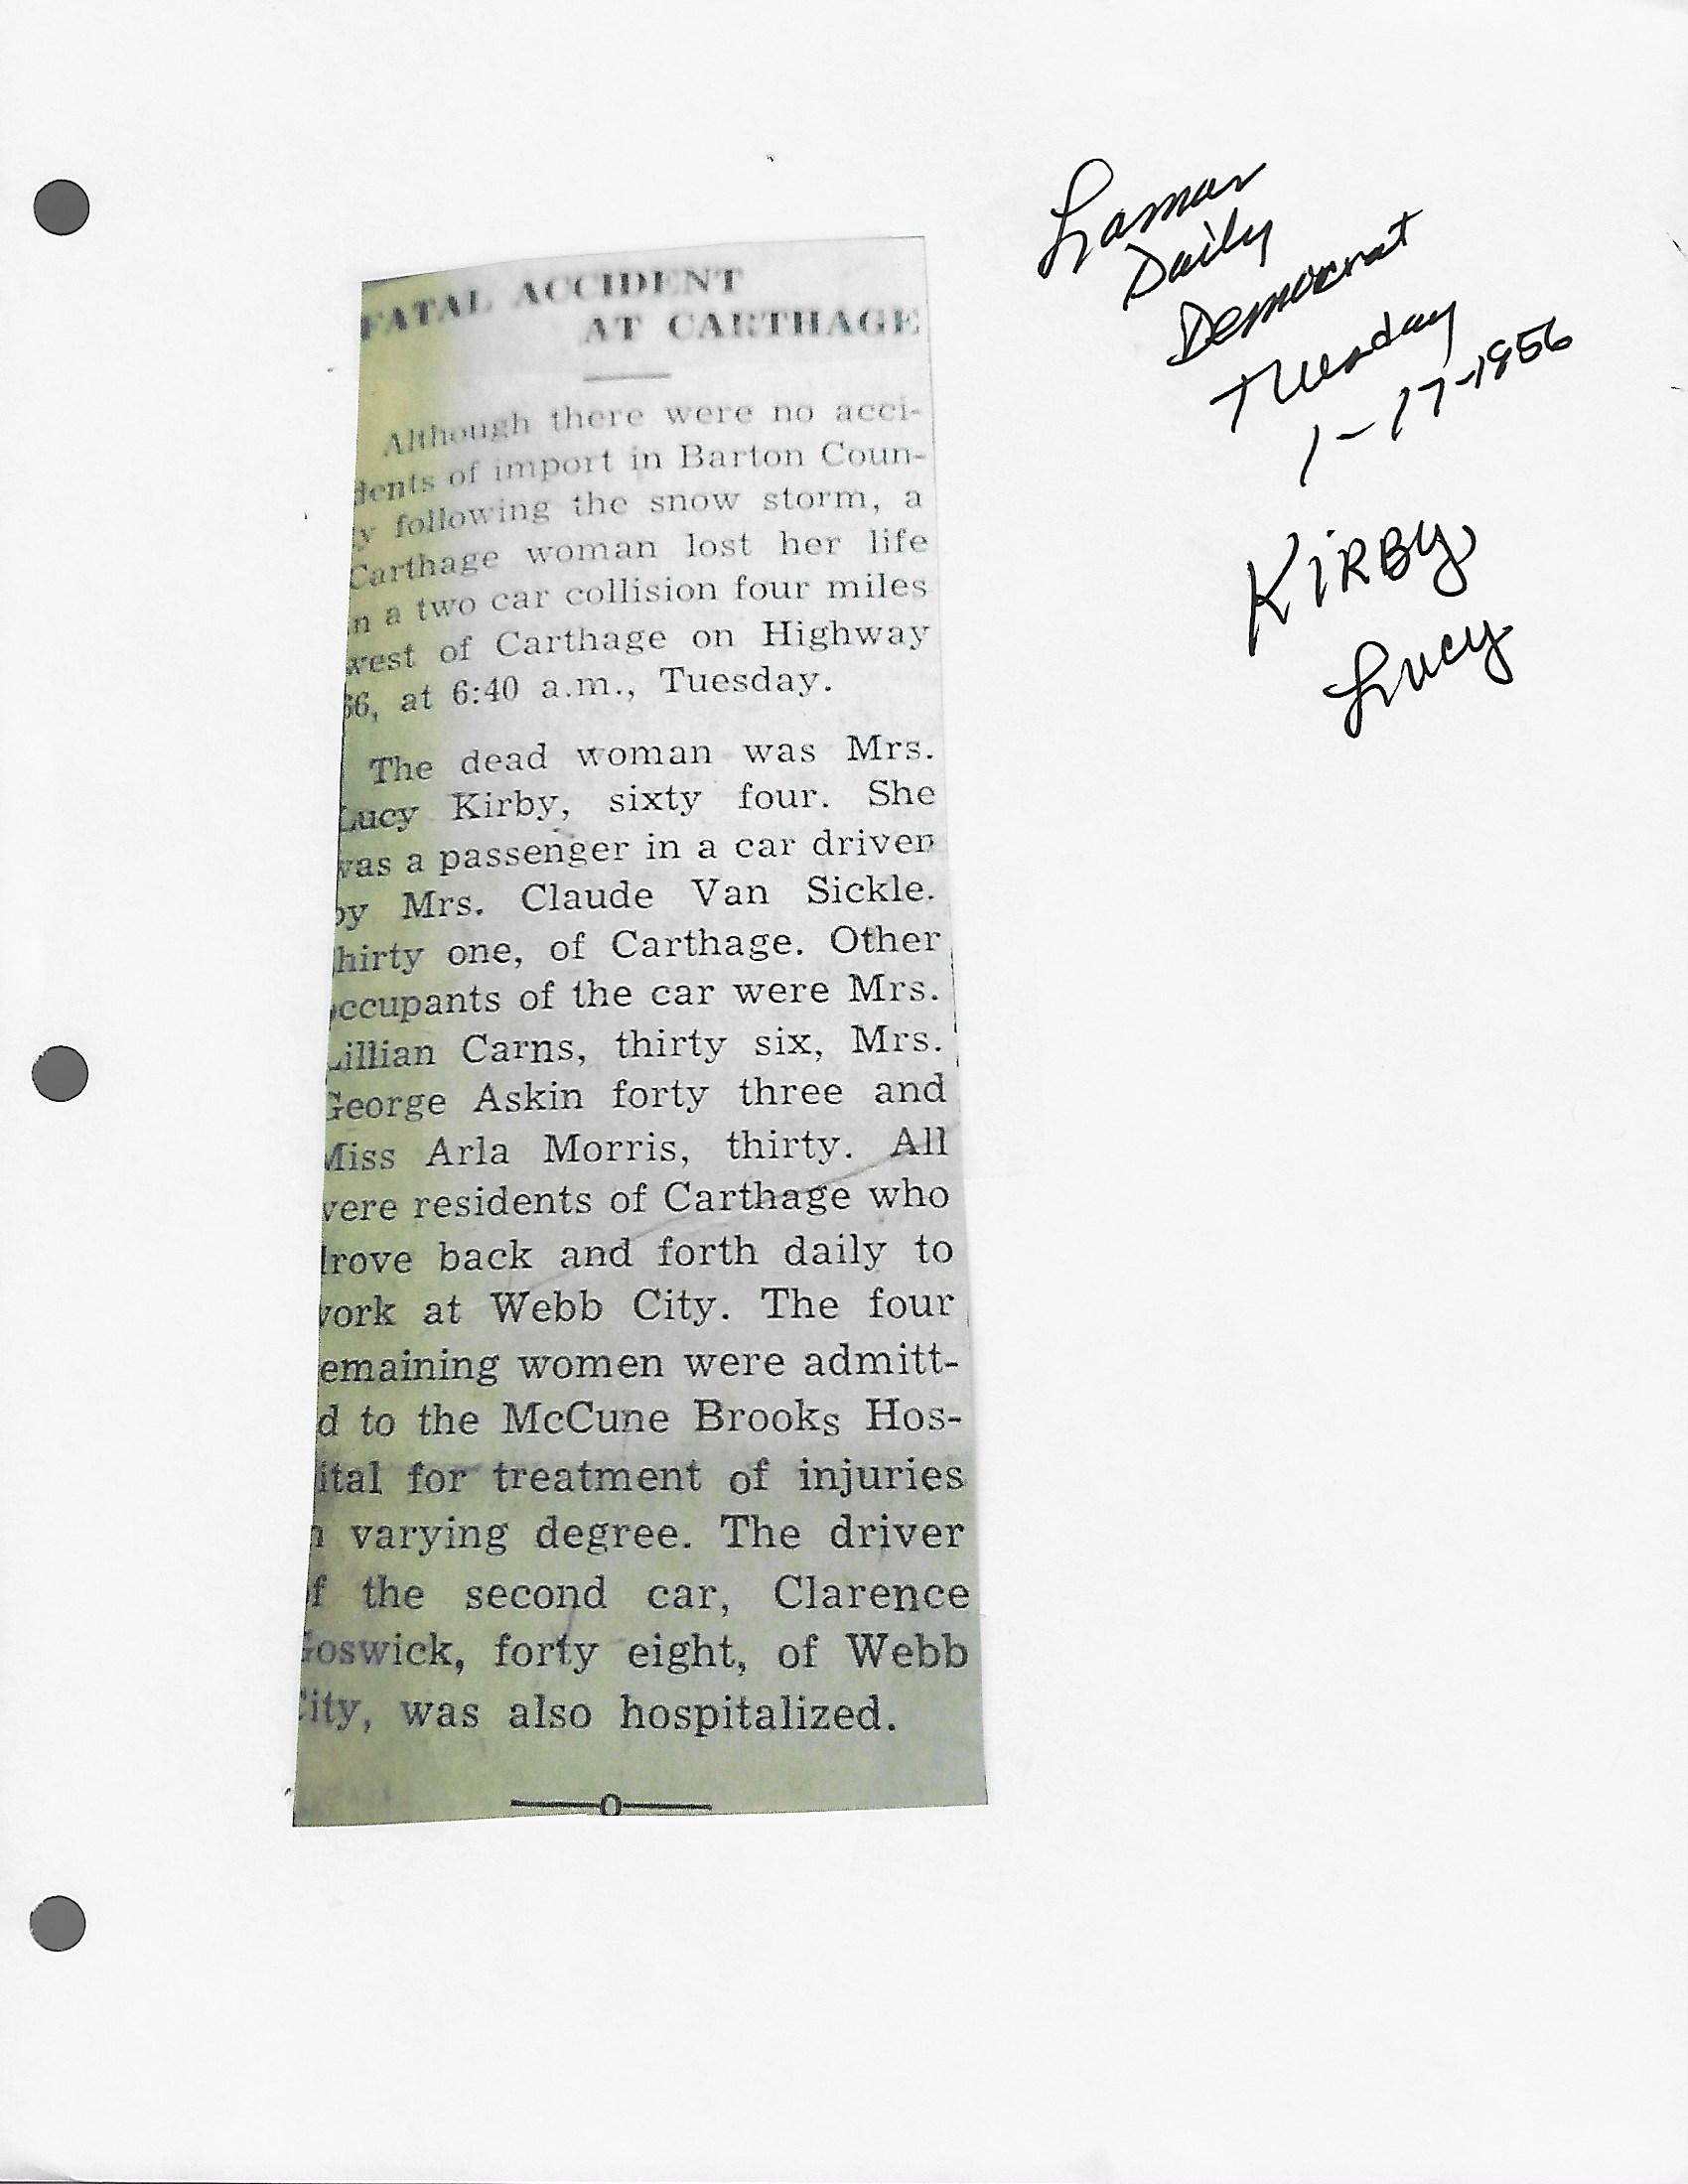 FATAL ACCIDENT
AT CARTHAGE
Although there were no acci-
dents of import in Barton Coun-
y following the snow storm, a
Carthage woman lost her life
n a two car collision four miles
west of Carthage on Highway
66, at 6:40 a.m., Tuesday.
The dead woman was Mrs.
Lucy Kirby, sixty four. She
was a passenger in a car driven
by Mrs. Claude Van Sickle.
hirty one, of Carthage. Other
occupants of the car were Mrs.
Lillian Carns, thirty six, Mrs.
George Askin forty three and
Miss Arla Morris, thirty. All
were residents of Carthage who
drove back and forth daily to
work at Webb City. The four
emaining women were admitt-
d to the McCune Brooks Hos-
ital for treatment of injuries
n varying degree. The driver
of the second car, Clarence
Goswick, forty eight, of Webb
City, was also hospitalized.
Lamar
Daily
Democrat
Tuesday
1-17-1856
KIRBY
Lucy